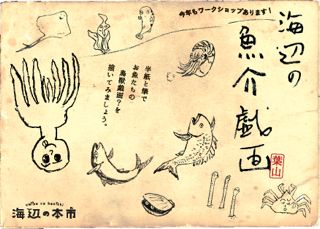 今年もワークショップあります!
海辺の
魚介戯画
葉山
半紙と筆で
お魚たちの
鳥獣戯画?を
描いてみましょう。
海辺の本市